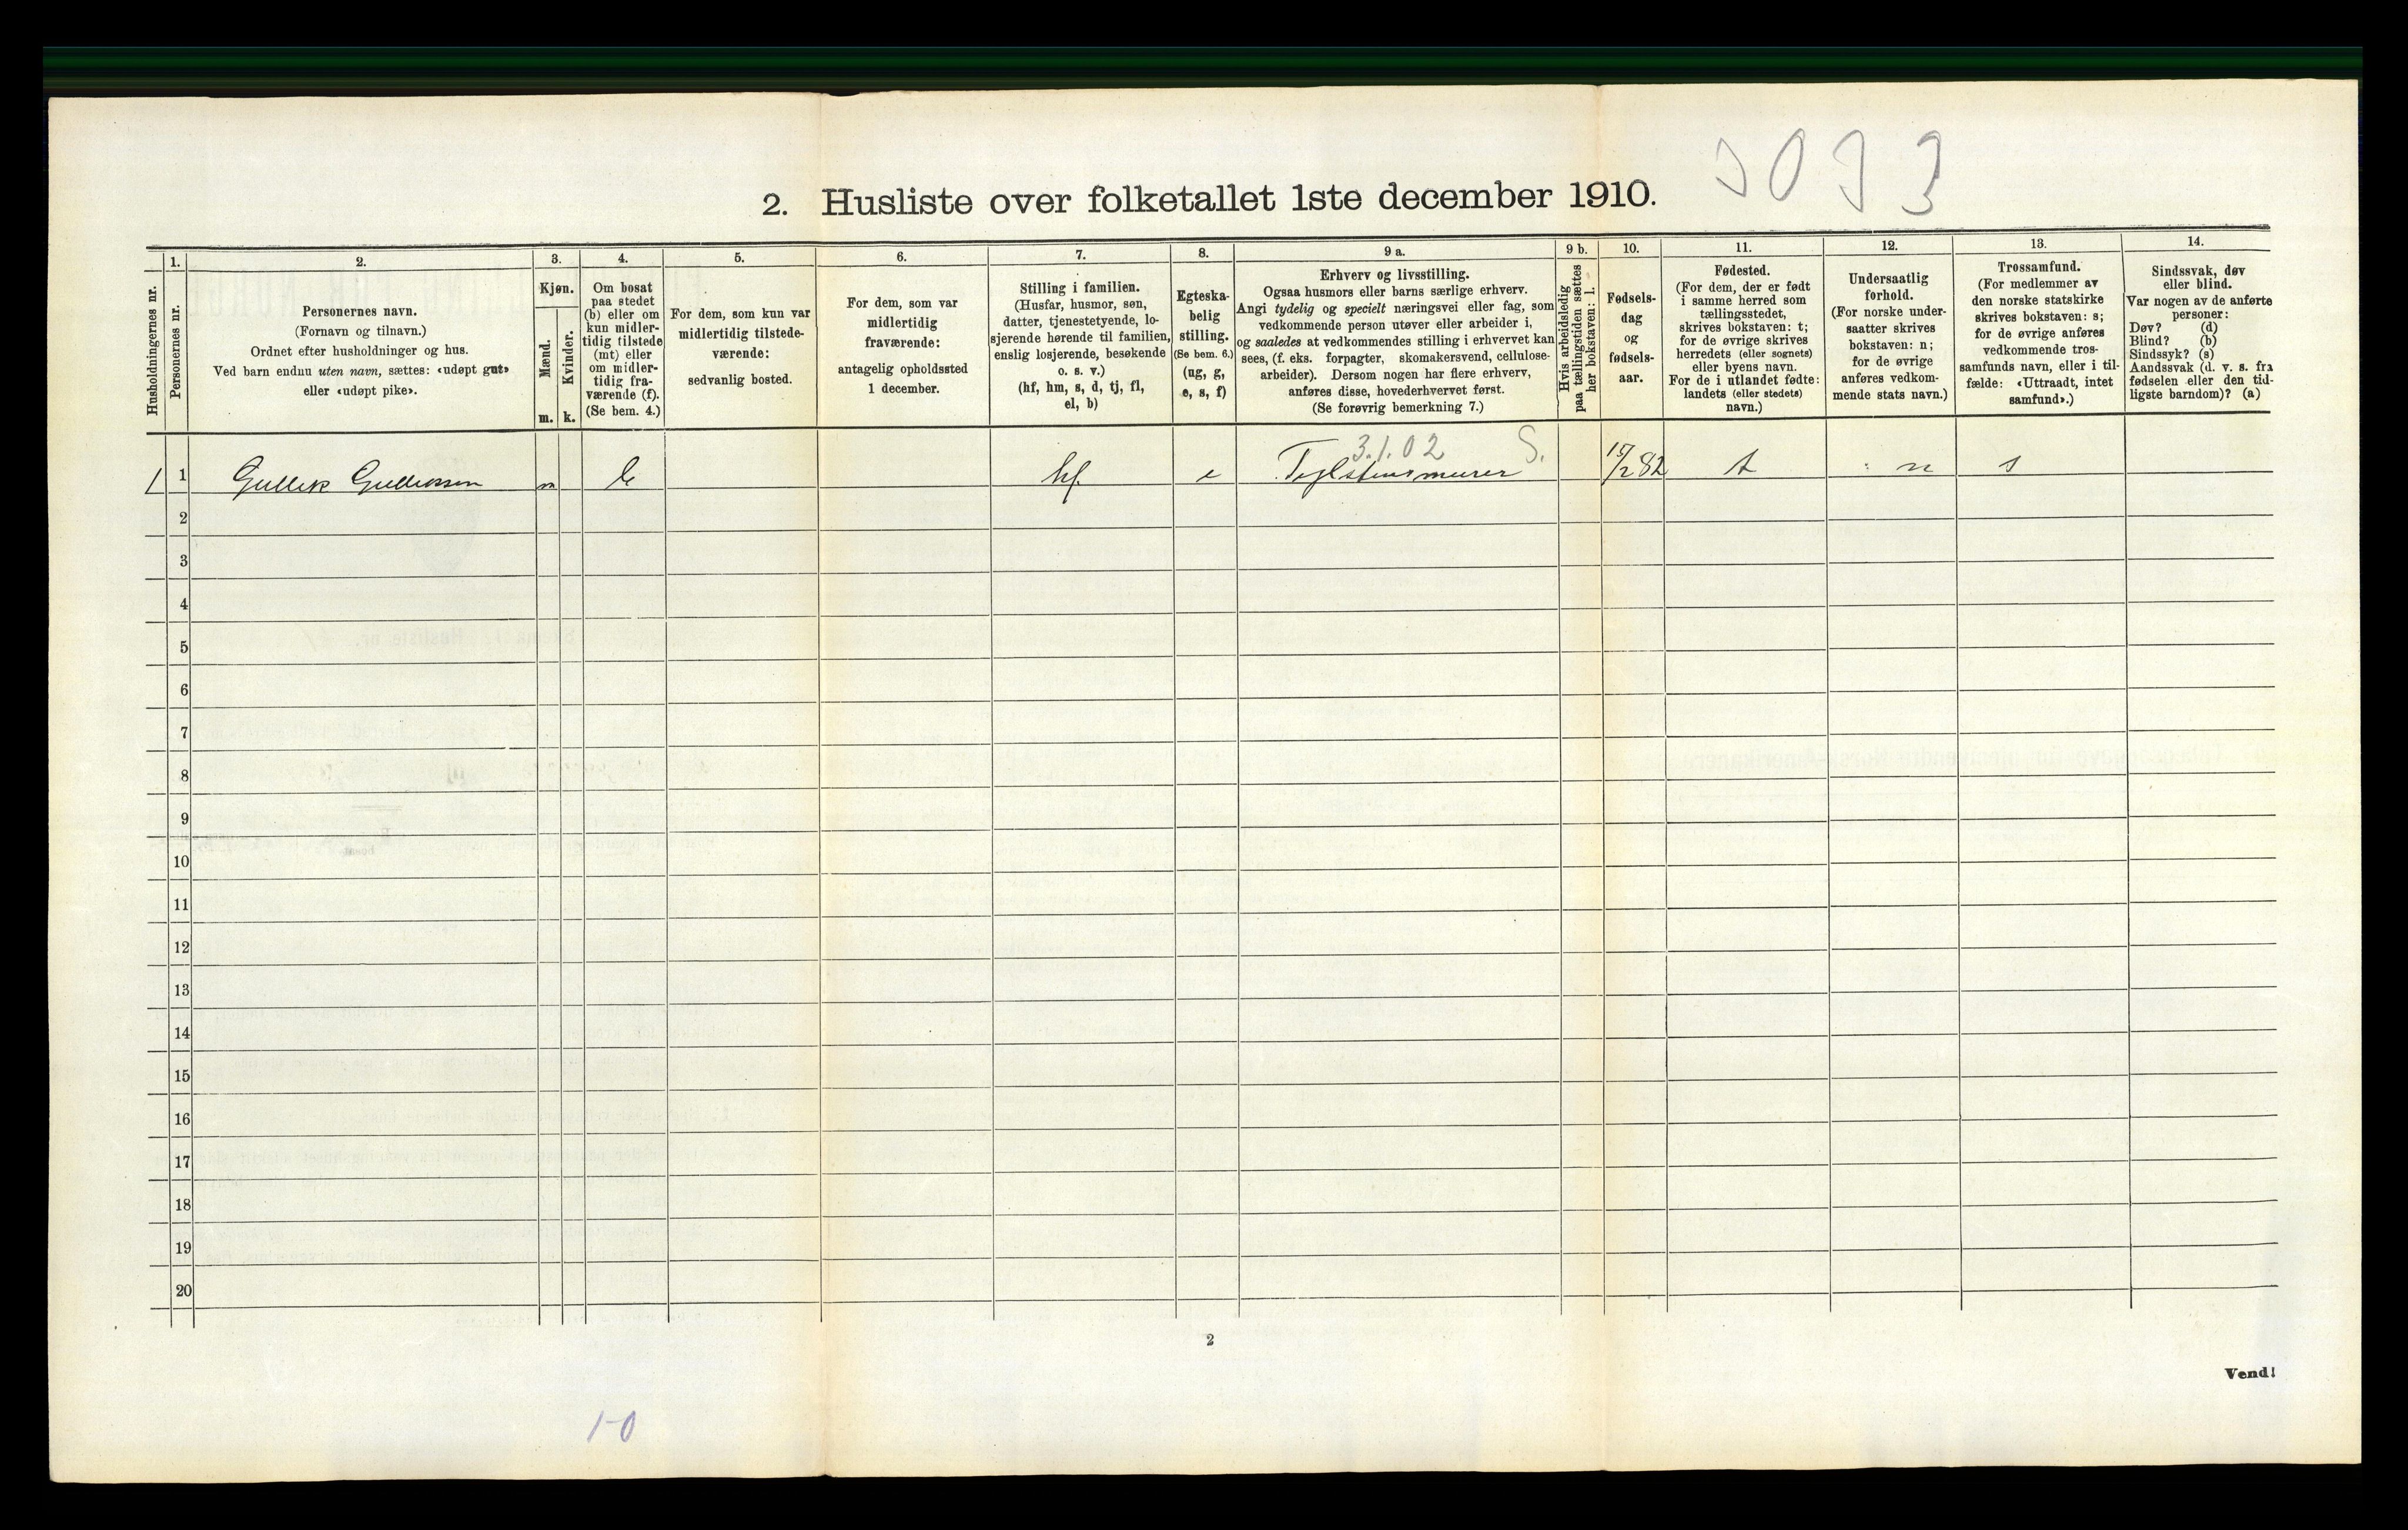 3033
2. Husliste over folketallet 1ste december 1910.
Husholdningernes nr.
1.
Personernes nr.
2.
Personernes navn.
(Fornavn og tilnavn.)
Ordnet efter husholdninger og hus.
Ved barn endnu uten navn, sættes: «udøpt gut»
eller «udøpt pike».
3.
Kjøn.
Mænd.
Kvinder.
m. k.
4.
Om bosat
paa stedet
(b) eller om
kun midler-
tidig tilstede
(mt) eller
om midler-
tidig fra-
værende (f).
(Se bem. 4.)
5.
For dem, som kun var
midlertidig tilstede-
værende:
sedvanlig bosted.
6.
For dem, som var
midlertidig
fraværende:
antagelig opholdssted
1 december.
7.
Stilling i familien.
(Husfar, husmor, søn,
datter, tjenestetyende, lo-
sjerende hørende til familien,
enslig losjerende, besøkende
o. s. v.)
(hf, hm, s, d, tj, fl,
el, b)
8.
Egteska-
belig
stilling.
(Se bem. 6.)
(ug, g,
e, s, f)
9 a.
Erhverv og livsstilling.
Ogsaa husmors eller barns særlige erhverv.
Angi tydelig og specielt næringsvei eller fag, som
vedkommende person utøver eller arbeider i,
og saaledes at vedkommendes stilling i erhvervet kan
sees, (f. eks. forpagter, skomakersvend, cellulose-
arbeider). Dersom nogen har flere erhverv,
anføres disse, hovederhvervet først.
(Se forøvrig bemerkning 7.)
9 b.
Hvis arbeidsledig
paa tællingstiden sættes
her bokstaven: l.
10.
Fødsels-
dag
og
fødsels-
aar.
11.
Fødested.
(For dem, der er født
i samme herred som
tællingsstedet,
skrives bokstaven: t;
for de øvrige skrives
herredets (eller sognets)
eller byens navn.
For de i utlandet fødte:
landets (eller stedets)
navn.)
12.
Undersaatlig
forhold.
(For norske under-
saatter skrives
bokstaven: n;
for de øvrige
anføres vedkom-
mende stats navn.)
13.
Trossamfund.
(For medlemmer av
den norske statskirke
skrives bokstaven: s;
for de øvrige anføres
vedkommende tros-
samfunds navn, eller i til-
fælde: «Uttraadt, intet
samfund».)
14.
Sindssvak, døv
eller blind.
Var nogen av de anførte
personer:
Døv? (d)
Blind? (b)
Sindssyk? (s)
Aandssvak (d. v. s. fra
fødselen eller den tid-
ligste barndom)? (a)
3.1.02 S.
1 1 Gullik m b hf. e Teglstensmurer 15/2 82 t n s
2
3
4
5
6
7
8
9
10
11
12
13
14
15
16
17
18
19
20
2
Vend!
1-0